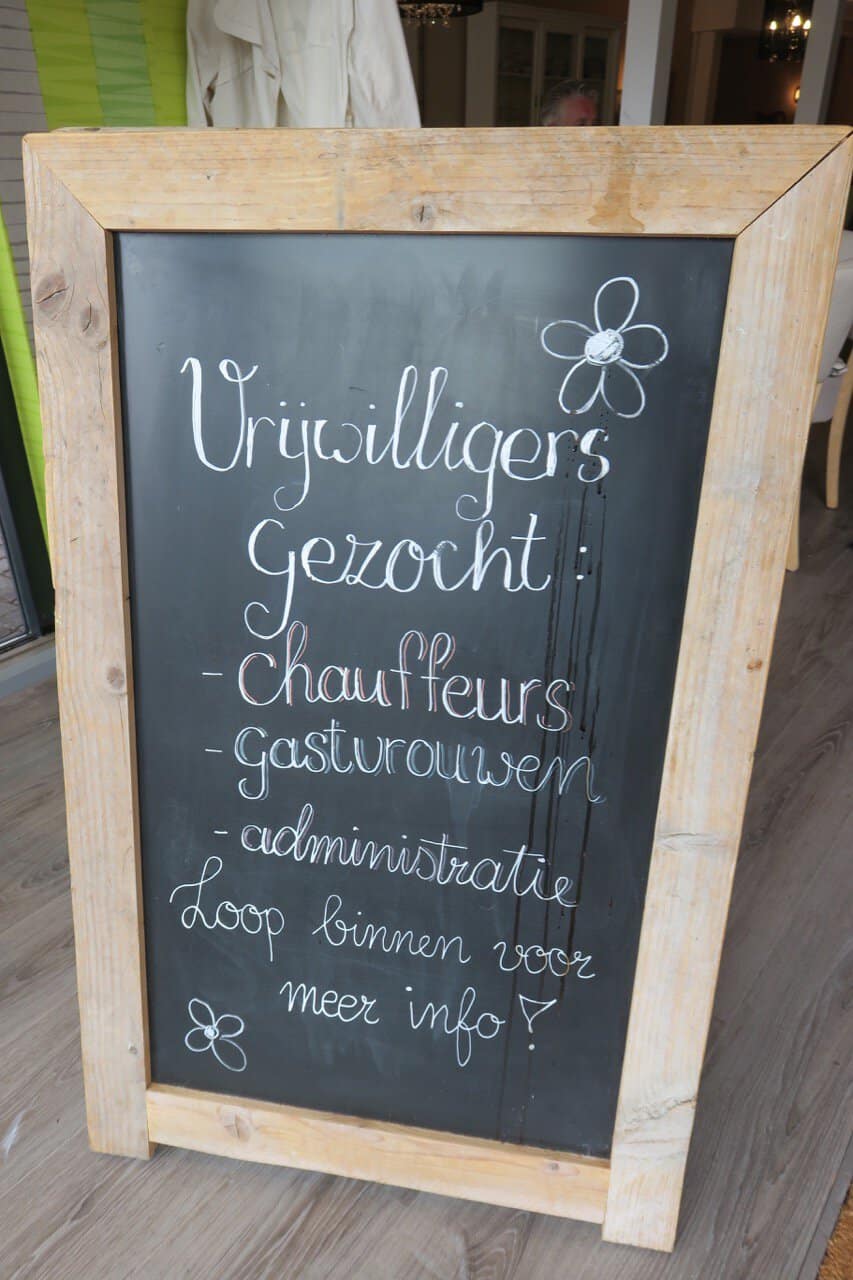 Vrijwilligers
gezocht :
- chauffeurs
- gastvrouwen
- administratie
Loop binnen voor
meer info !